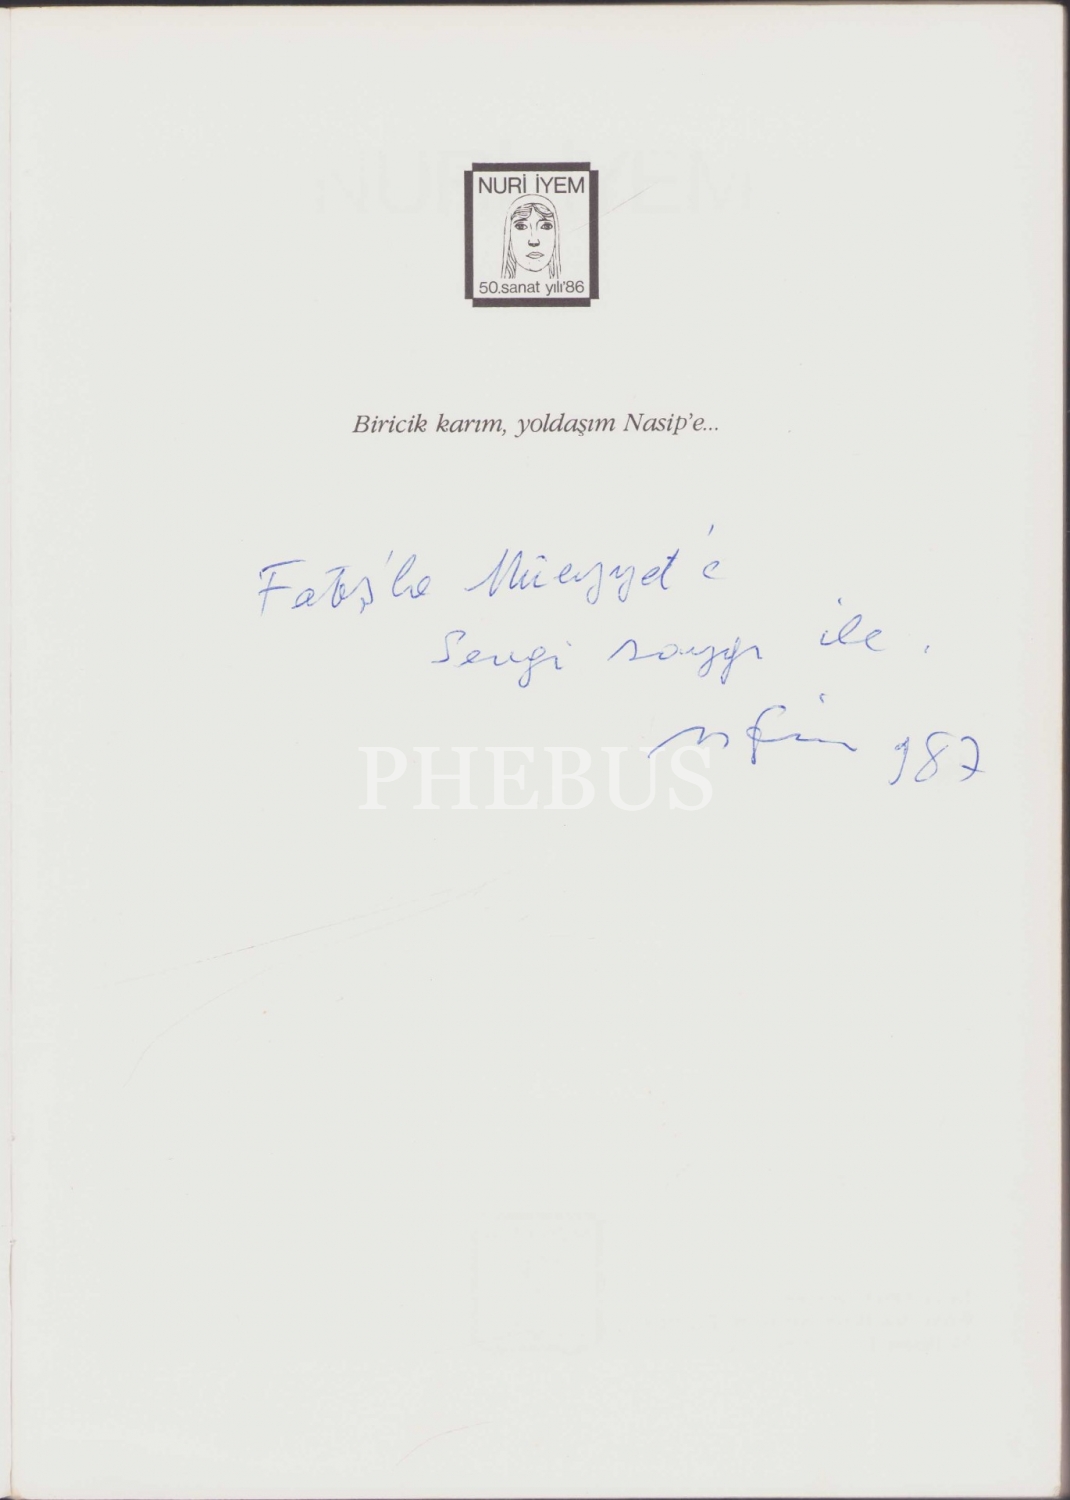 NURİ İYEM
50.sanat yılı'86
Biricik karım, yoldaşım Nasip'e...
Fatoş'la Müeyyet'e
Sevgi saygı ile.
987
PHEBUS